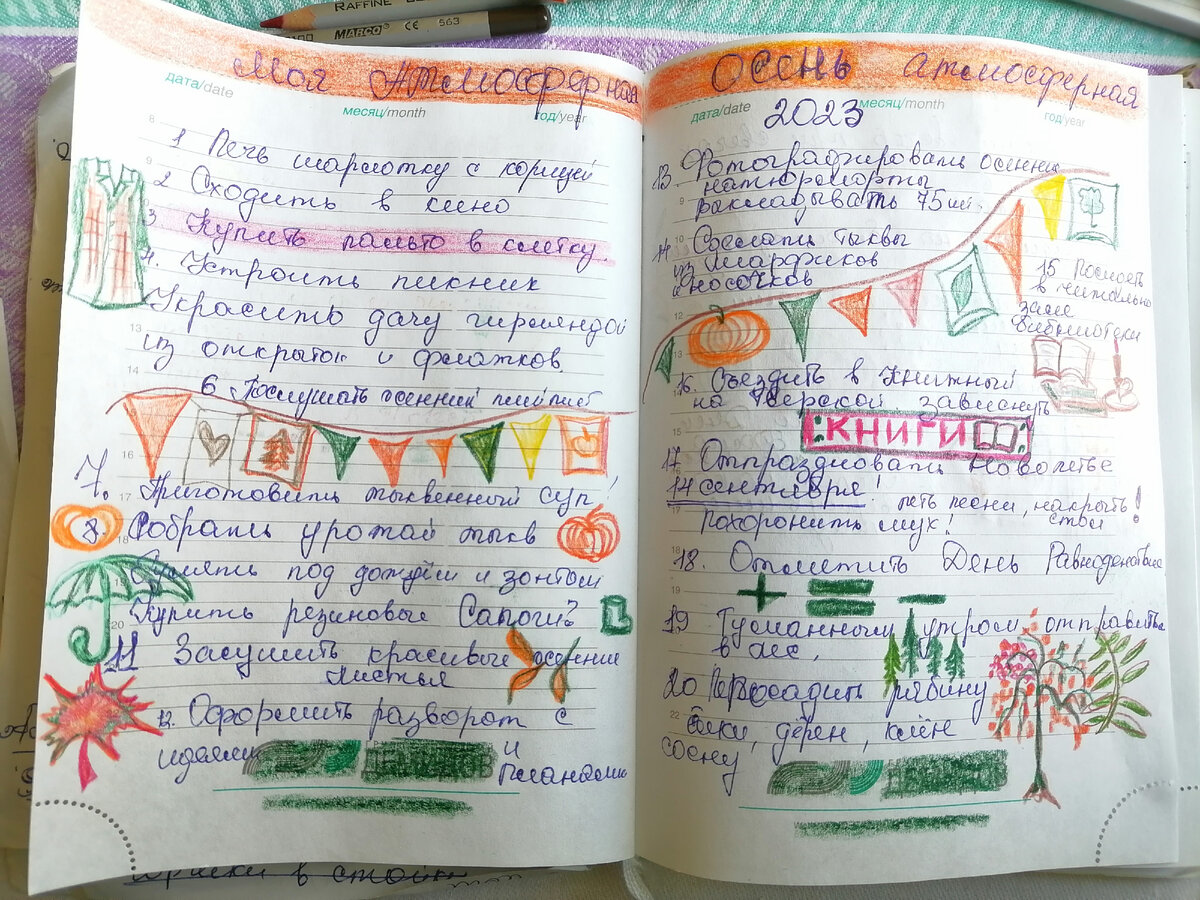 RAFFINE
MARCO CE 563
Моя Атмосферная
дата/date
месяц/month
год/year
8
1 Печь шарлотку с корицей
9
2 Сходить в кино
3 Купить пальто в клетку.
4. Устроить пикник
Украсить дачу гирляндой
13
из открыток и флажков.
14
6 Послушать осенний плейлист
16
7. Приготовить тыквенный суп!
17
8. Собрать урожай тыкв
18
Гулять под дождём и зонтом
Купить резиновые Сапоги?
20
11 Засушить красивые осенние
листья
12. Оформить разворот с
идеями и
планами
Осень атмосферная
дата/date
2023
месяц/month
год/year
13 Фотографировать осенние
натюрморты
9
раскладывать 75 шт.
10
14 Сделать тыквы
из шарфиков
и носочков
12
15 Посидеть
в читальном
зале
библиотеки
16. Съездить в Книжный
14
на Тверской зависнуть
15
КНИГИ
17 Отпраздновать Новолетье
14 сентября! петь песни, накрыть
17
стол!
Похоронить мух!
18
18. Отметить День Равноденствия
19
19 Туманным утром отправиться
в лес.
20 Пересадить рябину
22
ёлки, дёрен, клён
сосну